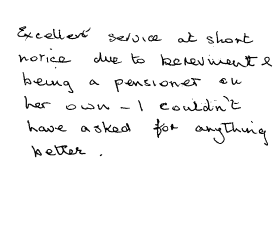 Excellent service at short
notice due to bereviment &
being a pensioner on
her own - I couldn't
have asked for anything
better.